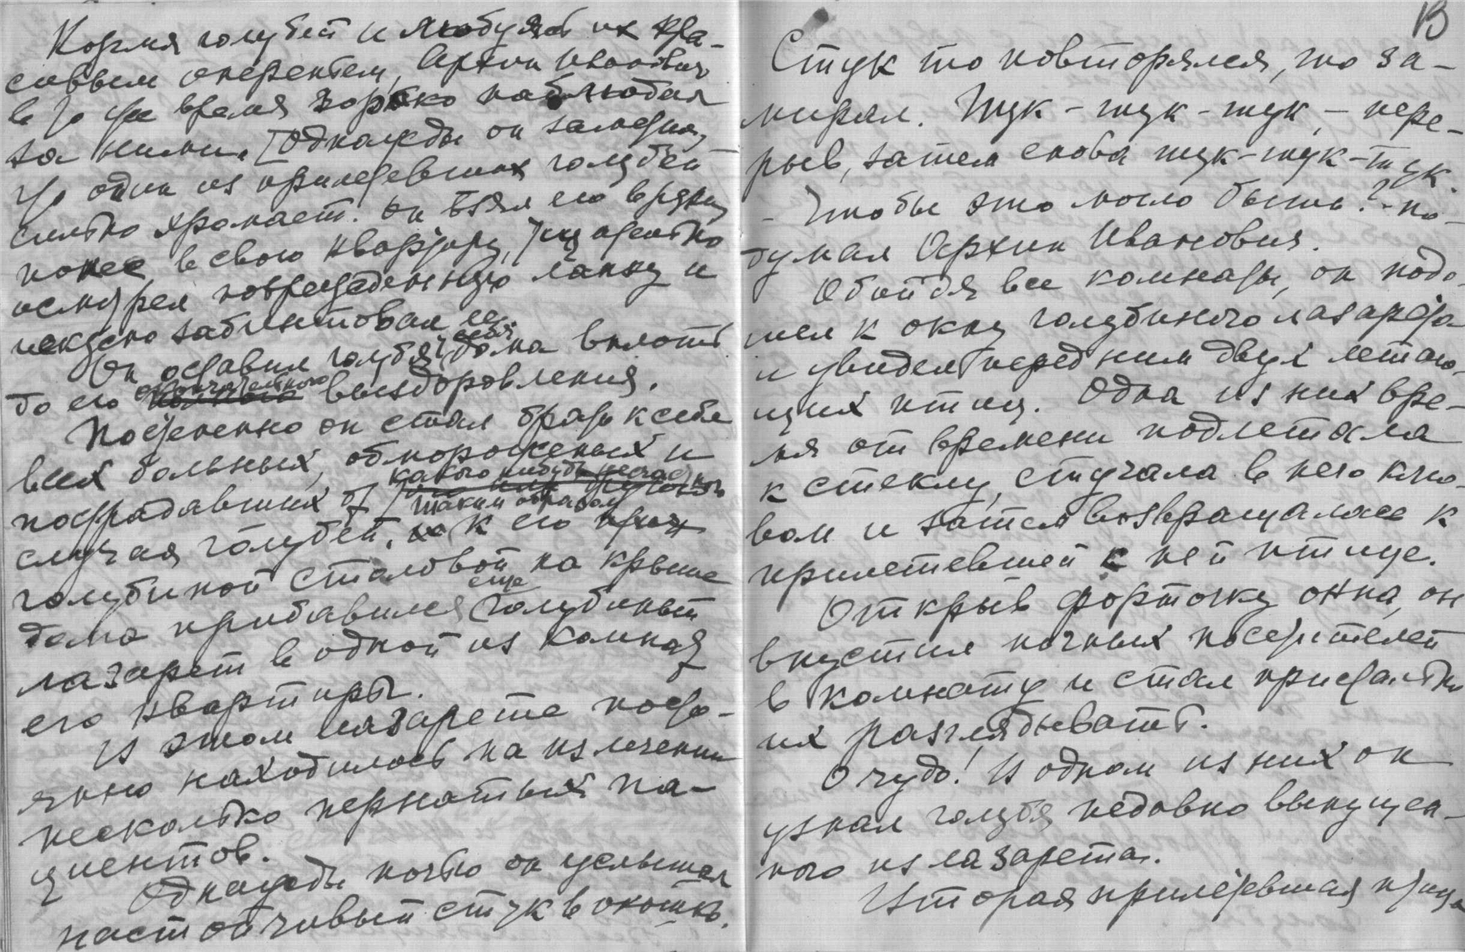 Кормя голубей и любуясь их кра-
сивым оперением, Архип Иванович
в то же время зорко наблюдал
за ними. [Однажды он заметил,
что один из прилетевших голубей
сильно хромает. Он взял его в руки,
понес в свою квартиру, тщательно
осмотрел поврежденную лапку и
искусно забинтовал ее
Он оставил голубя у себя дома вплоть
до его окончательного выздоровления.
Постепенно он стал брать к себе
всех больных, обмороженных и
пострадавших от какого нибудь несчастного
случая голубей. Таким образом к его
голубиной столовой на крыше
дома прибавился еще голубиный
лазарет в одной из комнат
его квартиры.
В этом лазарете посто-
янно находилось на излечении
несколько пернатых па-
циентов.
Однажды ночью он услышал
настойчивый стук в окошко.
13
Стук то повторялся, то за-
мирал. Тук-тук-тук, – пере-
рыв, затем снова тук-тук-тук.
- Чтобы это могло быть? - по-
думал Архип Иванович.
Обойдя все комнаты, он подо-
шел к окну голубиного лазарета
и увидел перед ним двух летаю-
щих птиц. Одна из них вре-
мя от времени подлетала
к стеклу, стучала в него клю-
вом и затем возвращалась к
прилетевшей с ней птице.
Открыв форточку окна, он
впустил ночных посетителей
в комнату и стал пристально
их разглядывать.
О чудо! В одном из них он
узнал голубя недавно выпущен-
ного из лазарета.
Вторая прилетевшая птица